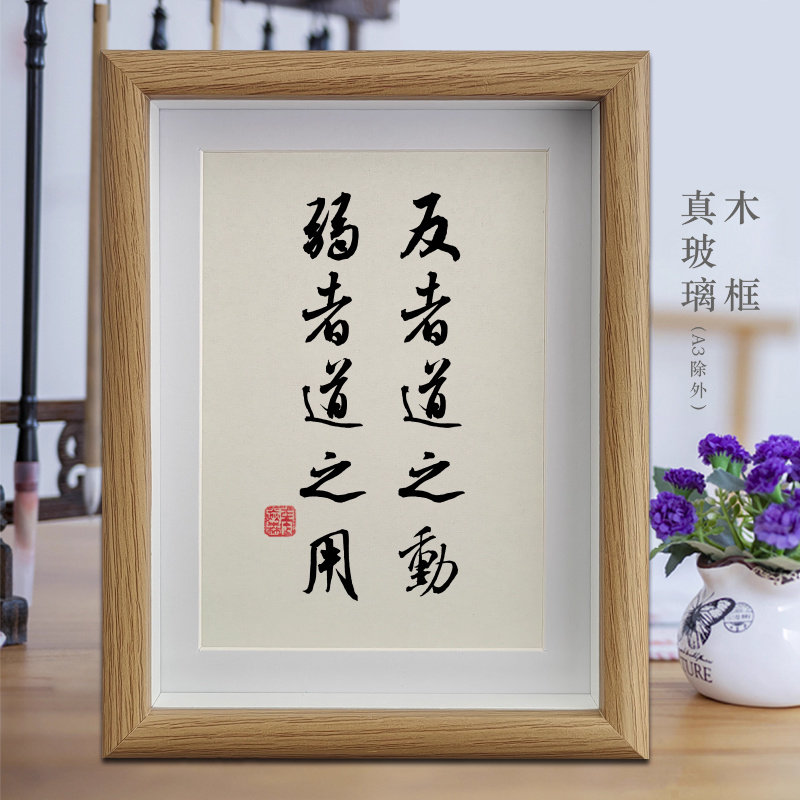 反者道之動
弱者道之用
木框
真玻璃
(A3除外)
TURE